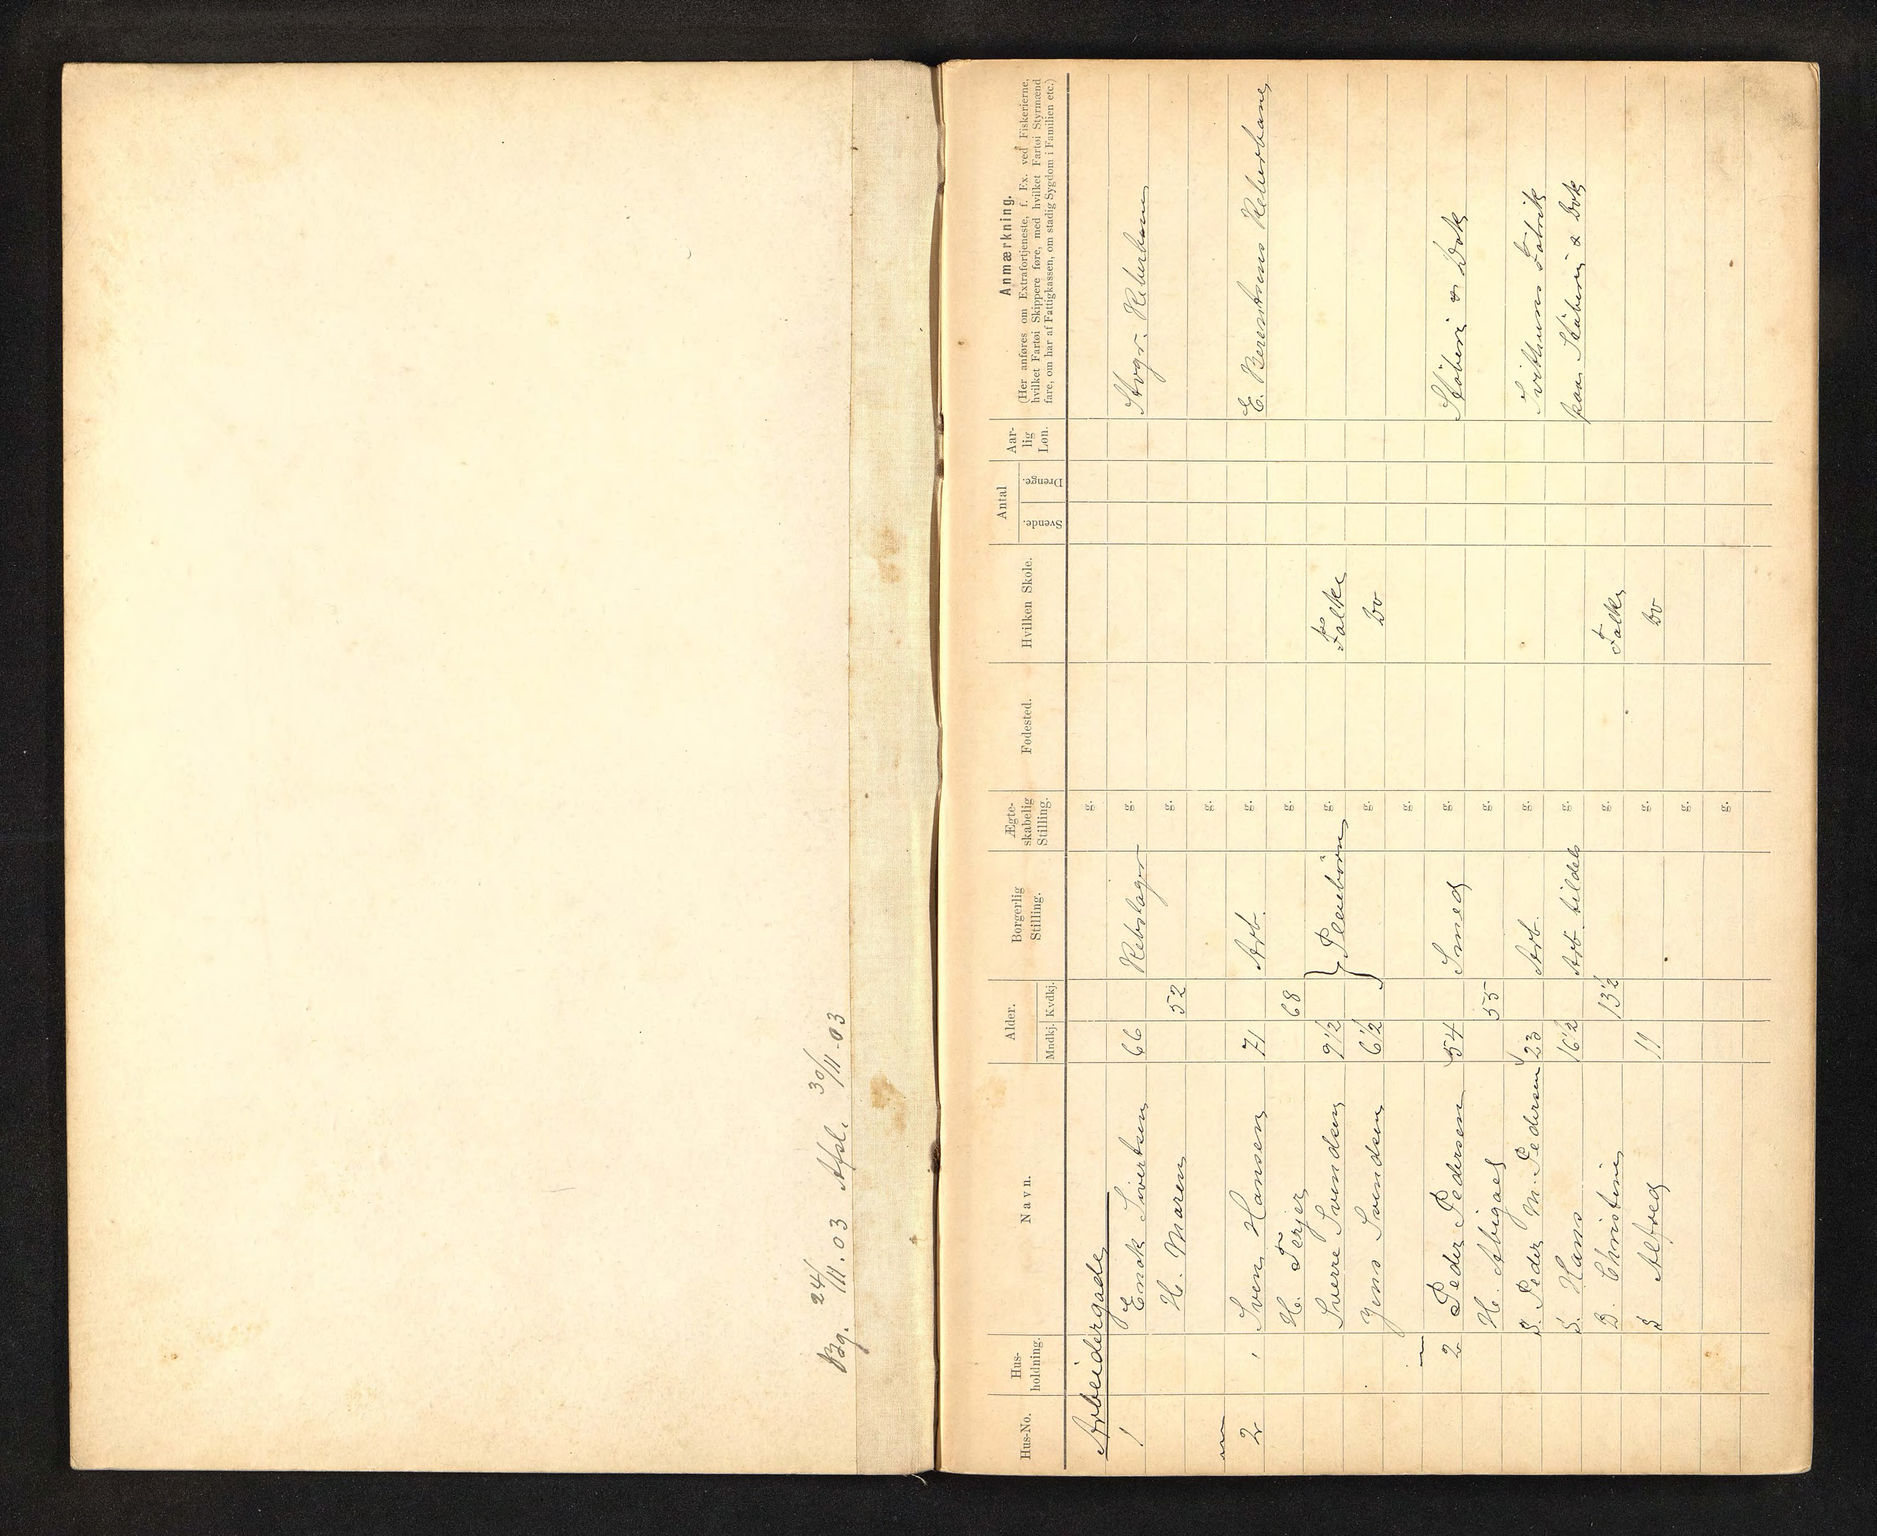 Bg. 24/11.03 Afsl. 30/11-03
Hus-No.
Hus-
holdning.
Navn.
Alder.
Mndkj.
Kvdkj.
Borgerlig
Stilling.
Ægte-
skabelig
Stilling.
Fødested.
Hvilken Skole.
Antal
Svende.
Drenge.
Aar-
lig
Løn.
Anmærkning.
(Her anføres om Extrafortjeneste, f. Ex. ved Fiskerierne,
hvilket Fartøi Skippere føre, med hvilket Fartøi Styrmænd
fare, om har af Fattigkassen, om stadig Sygdom i Familien etc.)
Arbeidergade g.
1 Enok Sivertsen 66 Rebslager g. Stvgr. Reberbane
H. Maren 52 g.
g.
2 1 Sven Hansen 71 Arb. g. E. Berentsens Reberbane
H. Terjer 68 g.
Sverre Svendsen 9½ } Pleiebørn g. Folke
Jens Svendsen 6½ g. Do
g.
2 Peder Pedersen 54 Smed g. Støberi & Dok
H. Abigael 55 g.
S. Peder M. Pedersen 23 Arb. g. Svithuns Fabrik
S. Hans 16½ Arb. tildels g. paa Støberi & Dok
D. Christine 13½ g. Folke
S Alfred 11 g. Do
g.
g.